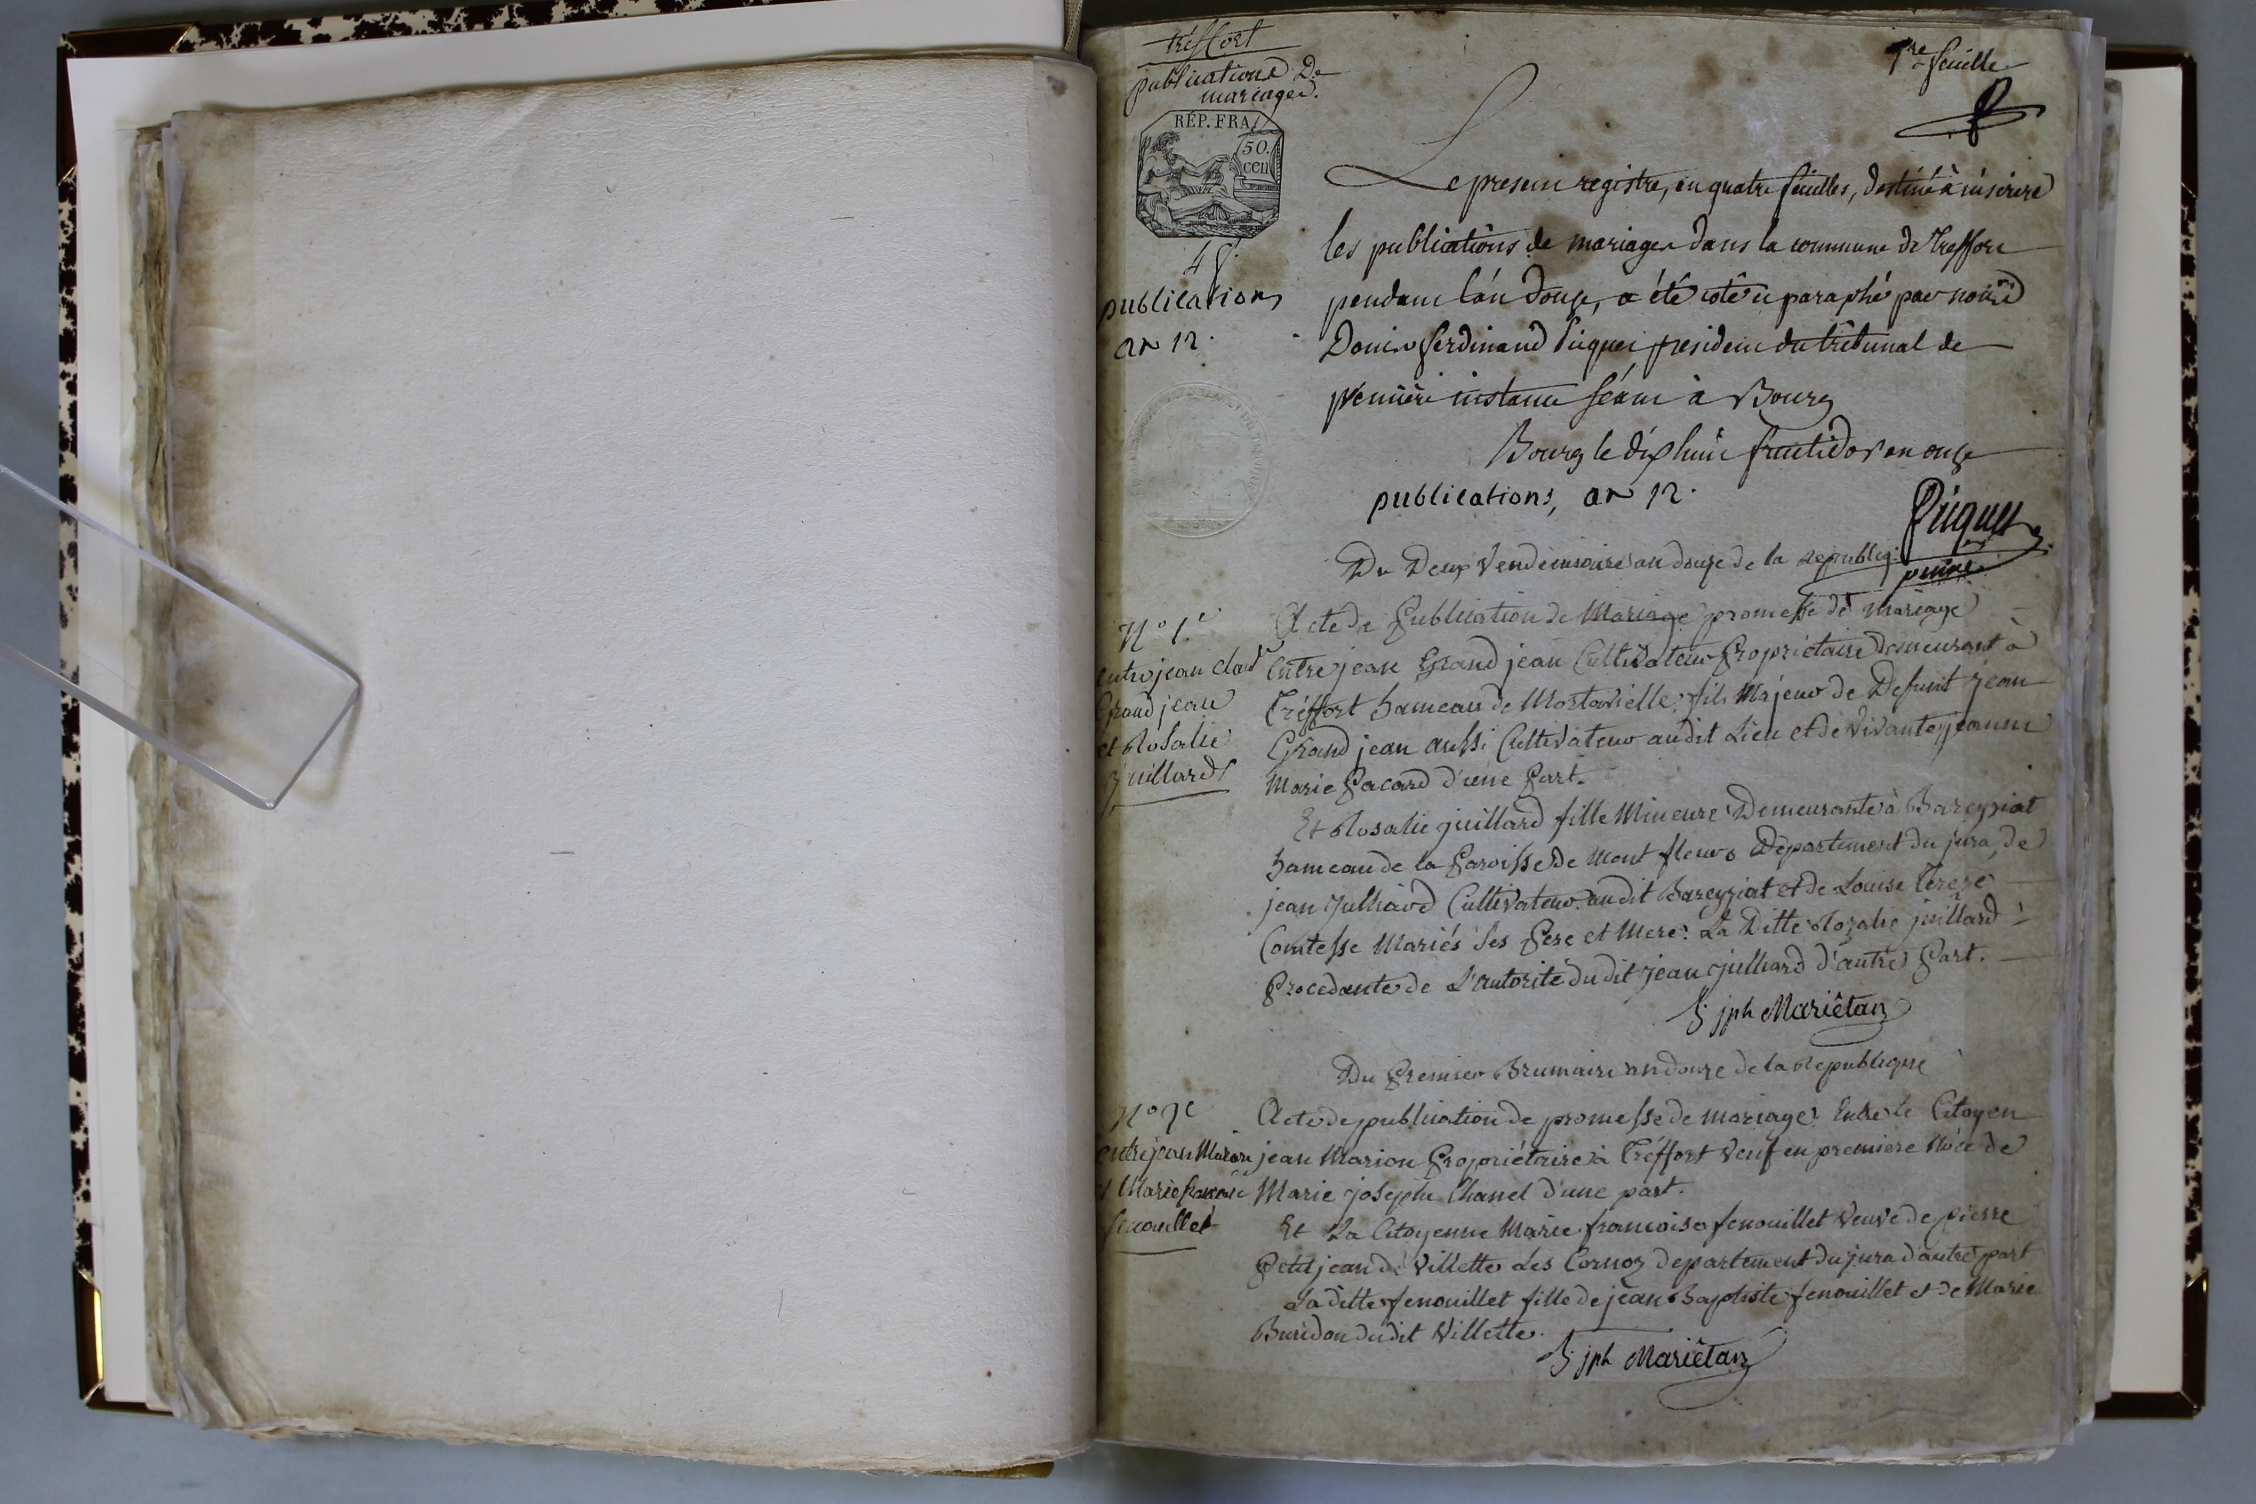 tréffort
publications De
mariages.
1re feuille
RÉP. FRA
50.
cen
Le present registre, en quatre feuilles, destiné à inscrire
les publications de mariages dans la commune de Treffort
pendant l'an douze, a été coté et paraphé par nous
ferdinand Picquet president du tribunal de
premiere instance séant à Bourg
publications
an 12.
Bourg le dix huit fructidor an onze
publications, an 12.
Picquet
Du Deux Vendemiaire an douze de la republiq.
N° 1.er
entre jean Claude
Grand jean
et Rosalie
Juillard
Acte de Publication de Mariage promesse de Mariage
Entre jean Grand jean Cultivateur Propriétaire demeurant à
Tréffort hameau de Montarielle, fils Majeur de Defunt jean
Grand jean aussi Cultivateur audit Lieu et de vivante jeanne
Marie Pacard d'une Part.
Et Rosalie juillard fille Mineure Demeurante à Bareyziat
hameau de la Paroisse de Mont fleur Département du jura, de
jean Julliard Cultivateur audit Bareyziat et de Louise Tereze
Comtesse Mariés ses Pere et Mere: La Ditte Rozalie juillard
Procedante de L'autorité dudit jean julliard d'autre Part.
jph Mariétan
Du Premier Brumaire an douze de la Republique
N° 2e
entre jean Marion
et Marie francoise
fenouillet
Acte de publication de promesse de mariage Entre le Citoyen
jean Marion Propriétaire à Tréffort Veuf en premiere Nôce de
Marie josephe Chanel d'une part.
Et La Citoyenne Marie francoise fenouillet Veuve de pierre
Petit jean de Villette Les Cornoz departement du jura d'autre part
La ditte fenouillet fille de jean Baptiste fenouillet et de Marie
Buridon dudit Villette.
jph Mariétan